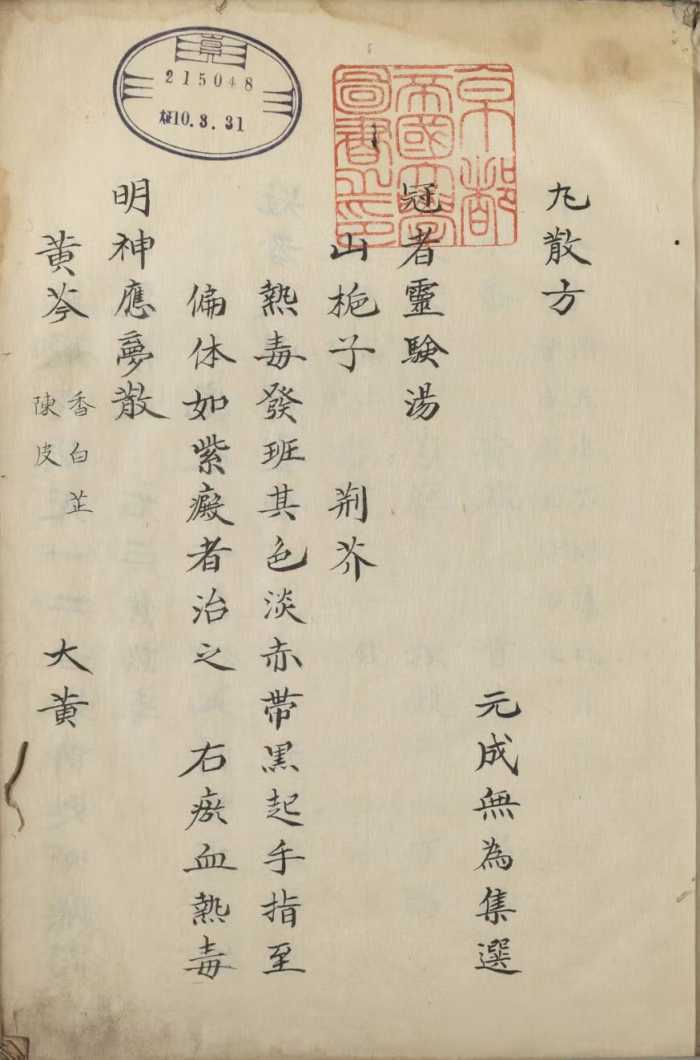 丸散方
元成無為集選
冠者靈験湯
山梔子 荆芥
熱毒發班其色淡赤帯黒起手指至
偏体如紫癜者治之 右瘀血熱毒
明神應夢散
黄芩 香白芷 陳皮 大黄
京都
帝國大學
圖書之印
215048
昭10.3.31